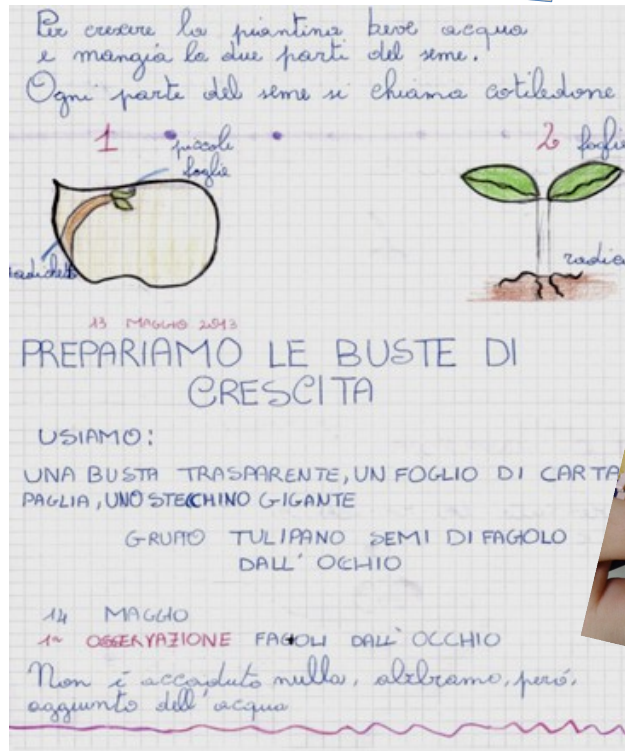 Per crescere la piantina beve acqua
e mangia le due parti del seme.
Ogni parte del seme si chiama cotiledone
1
piccole
foglie
2 foglie
radichetta
radice
13 MAGGIO 2013
PREPARIAMO LE BUSTE DI
CRESCITA
USIAMO:
UNA BUSTA TRASPARENTE, UN FOGLIO DI CARTA
PAGLIA, UNO STECCHINO GIGANTE
GRUPPO TULIPANO SEMI DI FAGIOLO
DALL' OCCHIO
14 MAGGIO
1ª OSSERVAZIONE FAGIOLI DALL' OCCHIO
Non è accaduto nulla, abbiamo, però,
aggiunto dell'acqua